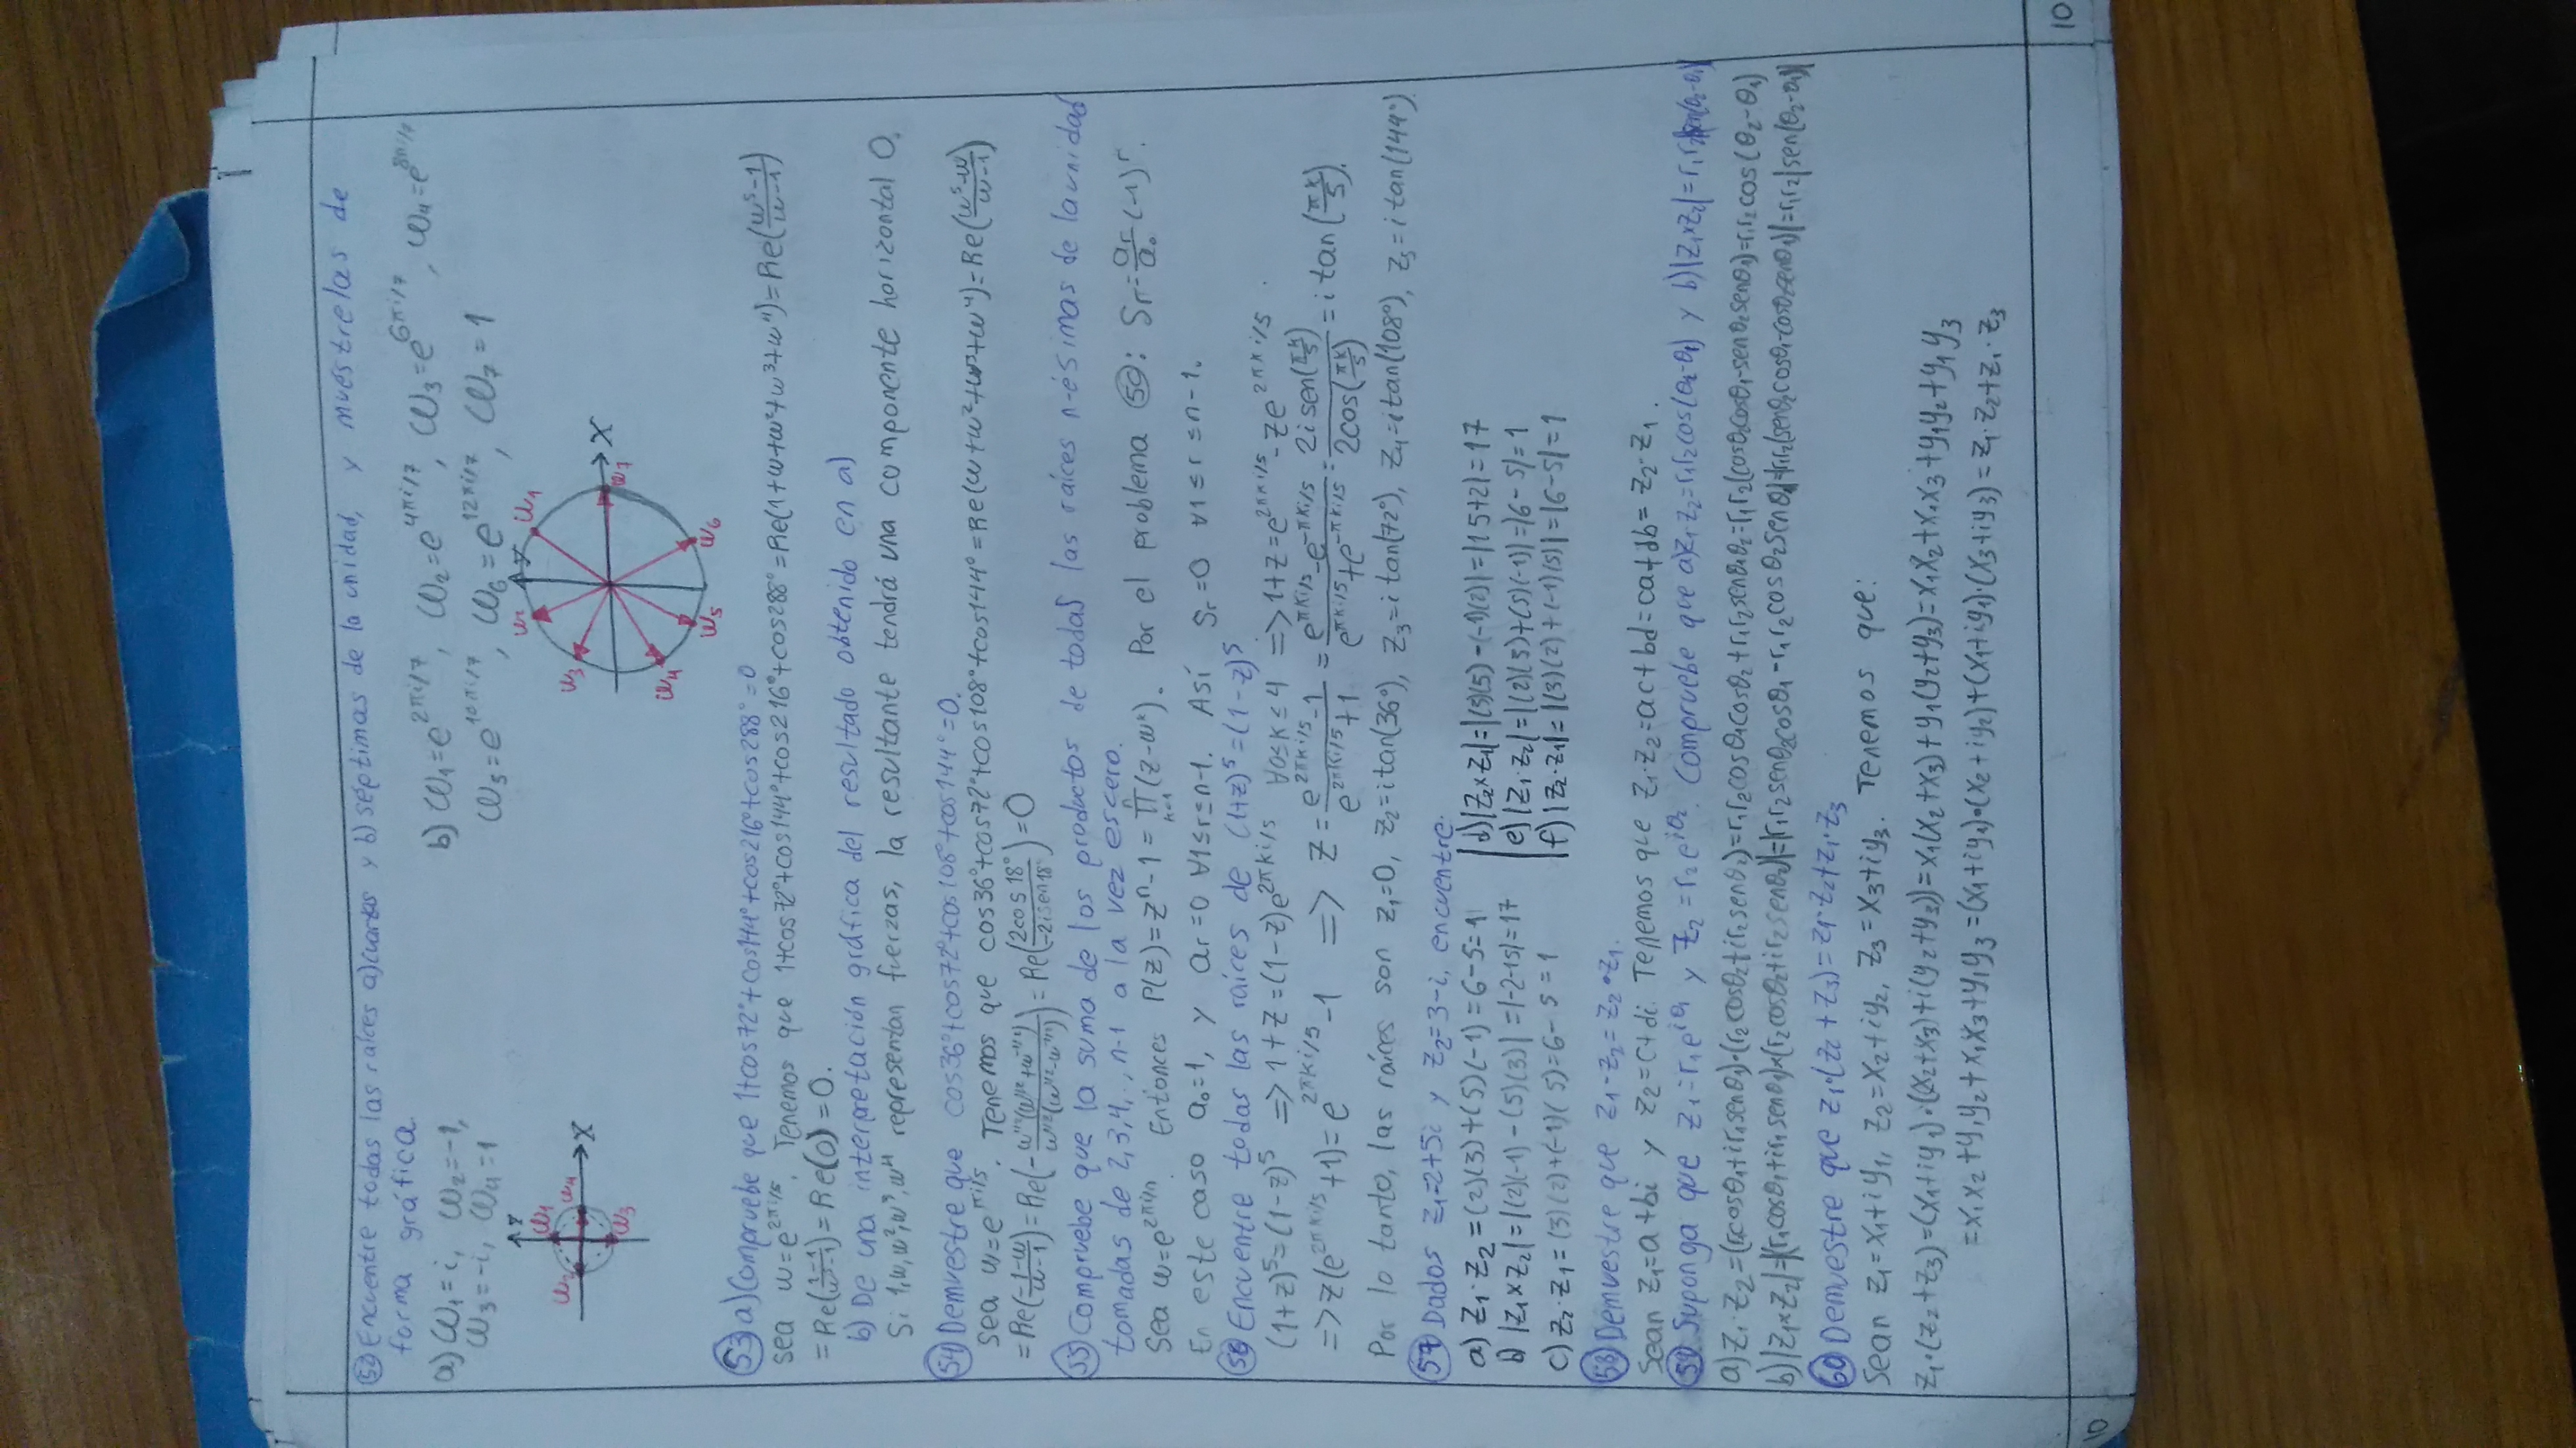 52 Encuentre todas las raíces a) cuartas y b) séptimas de la unidad, y muéstrelas de
forma gráfica.
a) ω₁=i, ω₂=-1,
ω₃=-i, ω₄=1
b) ω₁=e^{2πi/7}, ω₂=e^{4πi/7}, ω₃=e^{6πi/7}, ω₄=e^{8πi/7}
ω₅=e^{10πi/7}, ω₆=e^{12πi/7}, ω₇=1
Y
ω₁
ω₂ ω₄ X
ω₃
ω₂ Y ω₁
ω₃
X
ω₇
ω₄
ω₅ ω₆
53 a) Compruebe que 1+cos72°+cos144°+cos216°+cos288°=0
sea w=e^{2πi/5}. Tenemos que 1+cos72°+cos144°+cos216°+cos288°=Re(1+w+w²+w³+w⁴)=Re((w⁵-1)/(w-1))
=Re((1-1)/(w-1))=Re(0)=0.
b) De una interpretación gráfica del resultado obtenido en a)
Si 1,w,w²,w³,w⁴ representan fuerzas, la resultante tendrá una componente horizontal 0.
54 Demuestre que cos36°+cos72°+cos108°+cos144°=0.
sea w=e^{πi/5}. Tenemos que cos36°+cos72°+cos108°+cos144°=Re(w+w²+w³+w⁴)=Re((w⁵-w)/(w-1))
=Re((-1-w)/(w-1))=Re(-(w^{1/2}(w^{1/2}+w^{-1/2}))/(w^{1/2}(w^{1/2}-w^{-1/2})))=Re((2cos18°)/(-2isen18°))=0
55 Compruebe que la suma de los productos de todas las raíces n-ésimas de la unidad
tomadas de 2,3,4,..,n-1 a la vez es cero.
Sea w=e^{2πi/n}. Entonces P(z)=zⁿ-1=∏_{k=1}^{n}(z-w^k). Por el problema 50: Sr=(ar/a₀)(-1)^r.
En este caso a₀=1, y ar=0 ∀1≤r≤n-1. Así Sr=0 ∀1≤r≤n-1.
56 Encuentre todas las raíces de (1+z)⁵=(1-z)⁵
(1+z)⁵=(1-z)⁵ => 1+z=(1-z)e^{2πki/5} ∀0≤k≤4 => 1+z=e^{2πki/5}-ze^{2πki/5}.
=> z(e^{2πki/5}+1)=e^{2πki/5}-1 => z=(e^{2πki/5}-1)/(e^{2πki/5}+1)=(e^{πki/5}-e^{-πki/5})/(e^{πki/5}+e^{-πki/5})=(2i sen(πk/5))/(2cos(πk/5))=i tan(πk/5).
Por lo tanto, las raíces son z₁=0, z₂=i tan(36°), z₃=i tan(72°), z₄=i tan(108°), z₅=i tan(144°)
57 Dados z₁=2+5i y z₂=3-i, encuentre:
a) z₁·z₂=(2)(3)+(5)(-1)=6-5=1
b) |z₁×z₂|=|(2)(-1)-(5)(3)|=|-2-15|=17
c) z₂·z₁=(3)(2)+(-1)(5)=6-5=1
d) |z₂×z₁|=|(3)(5)-(-1)(2)|=|15+2|=17
e) |z₁·z₂|=|(2)(3)+(5)(-1)|=|6-5|=1
f) |z₂·z₁|=|(3)(2)+(-1)(5)|=|6-5|=1
58 Demuestre que z₁·z₂=z₂·z₁.
Sean z₁=a+bi y z₂=c+di. Tenemos que z₁·z₂=ac+bd=ca+db=z₂·z₁.
59 Suponga que z₁=r₁e^{iθ₁} y z₂=r₂e^{iθ₂}. Compruebe que a) z₁·z₂=r₁r₂cos(θ₂-θ₁) y b) |z₁×z₂|=r₁r₂|sen(θ₂-θ₁)|
a) z₁·z₂=(r₁cosθ₁+ir₁senθ₁)·(r₂cosθ₂+ir₂senθ₂)=r₁r₂cosθ₁cosθ₂+r₁r₂senθ₁θ₂=r₁r₂(cosθ₂cosθ₁-senθ₂senθ₁)=r₁r₂cos(θ₂-θ₁)
b) |z₁×z₂|=|(r₁cosθ₁+ir₁senθ₁)×(r₂cosθ₂+ir₂senθ₂)|=|r₁r₂senθ₂cosθ₁-r₁r₂cosθ₂senθ₁|=|r₁r₂(senθ₂cosθ₁-cosθ₂senθ₁)|=r₁r₂|sen(θ₂-θ₁)|
60 Demuestre que z₁·(z₂+z₃)=z₁·z₂+z₁·z₃
Sean z₁=x₁+iy₁, z₂=x₂+iy₂, z₃=x₃+iy₃. Tenemos que:
z₁·(z₂+z₃)=(x₁+iy₁)·((x₂+x₃)+i(y₂+y₃))=x₁(x₂+x₃)+y₁(y₂+y₃)=x₁x₂+x₁x₃+y₁y₂+y₁y₃
=x₁x₂+y₁y₂+x₁x₃+y₁y₃=(x₁+iy₁)·(x₂+iy₂)+(x₁+iy₁)·(x₃+iy₃)=z₁·z₂+z₁·z₃
10
10